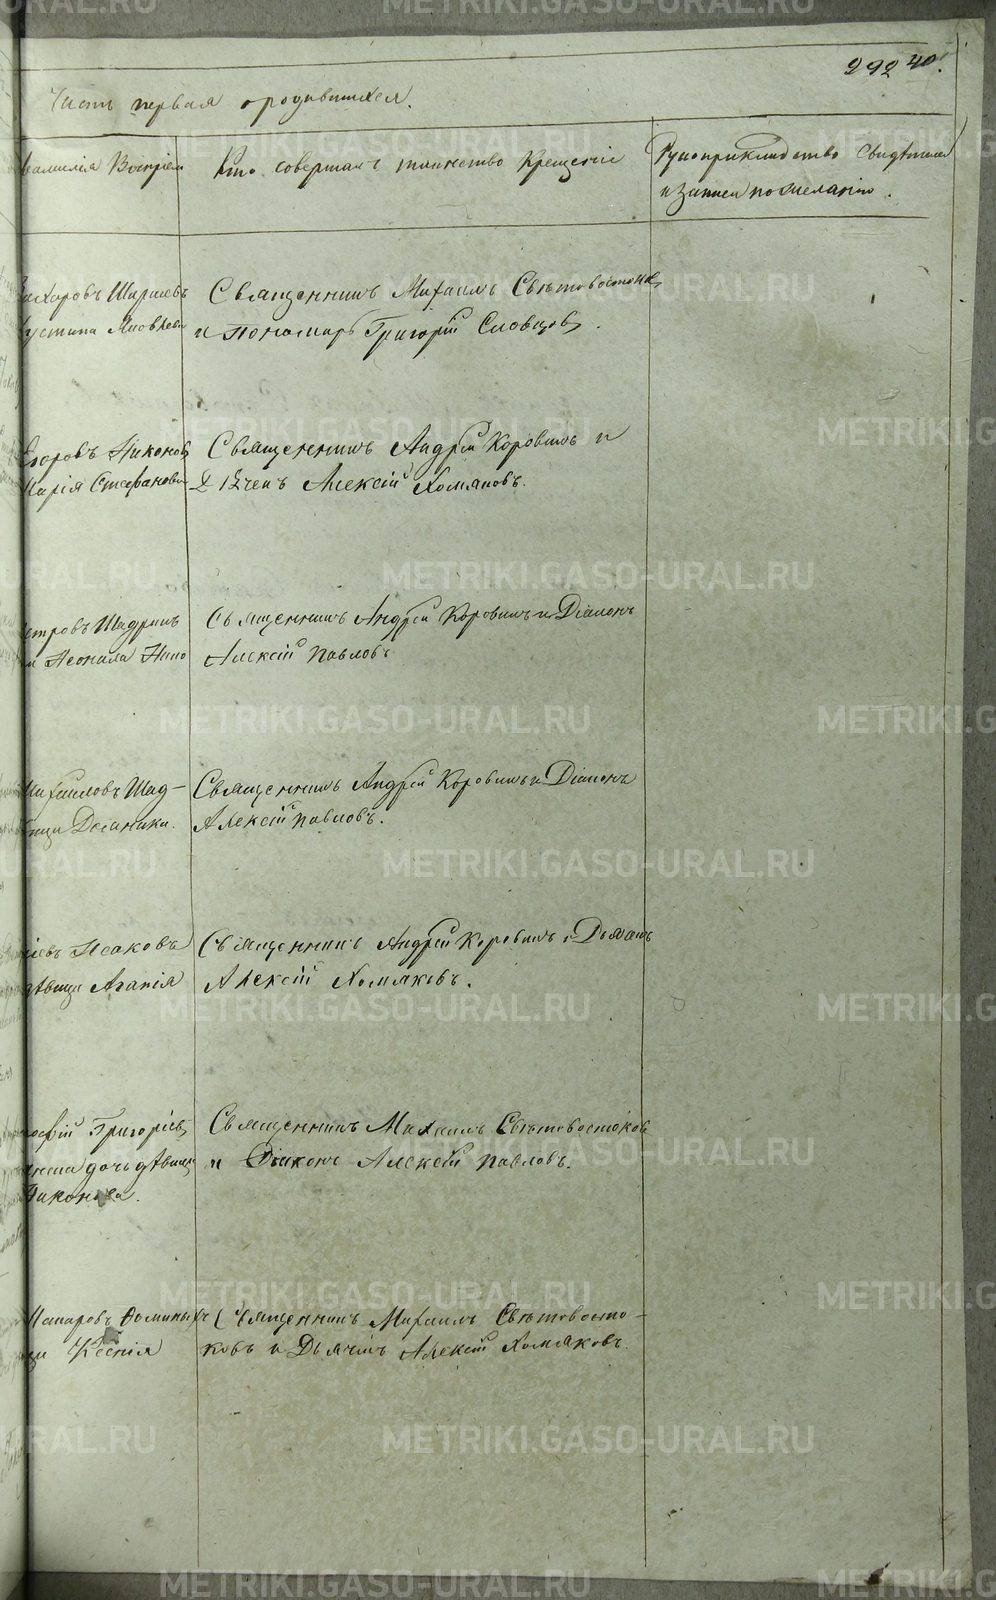 292 40.
Часть первая о родившихся.
фамилія Воспріем
Кто совершалъ таинство Крещенія
Рукоприкладство Свидѣтелей
и Записи по желанію.
Захаровъ
устина Яковлева
Священникъ Михаилъ Свѣтовостоковъ
и пономарь Григорій Словцовъ.
Егоровъ Никоновъ
Марія Стефанова
Священникъ Андрей Коровинъ и
Дьячекъ Алексій Хомяковъ.
етровъ Шадринъ
и Неонила
Священникъ Андрей Коровинъ и Діаконъ
Алексій Павловъ
Михайловъ Шад-
Священникъ Андрей Коровинъ и Діаконъ
Алексій Павловъ.
Исаковъ
дѣвица Агапія
Священникъ Андрей Коровинъ и Дьячекъ
Алексій Хомяковъ.
Григоріевъ
дочь дѣвица
Никонова.
Священникъ Михаилъ Свѣтовостоковъ
и Діаконъ Алексій Павловъ.
Макаровъ Ѳоминыхъ
Ксенія
Священникъ Михаилъ Свѣтовосто-
ковъ и Дьячекъ Алексій Хомяковъ.
METRIKI.GASO-URAL.RU